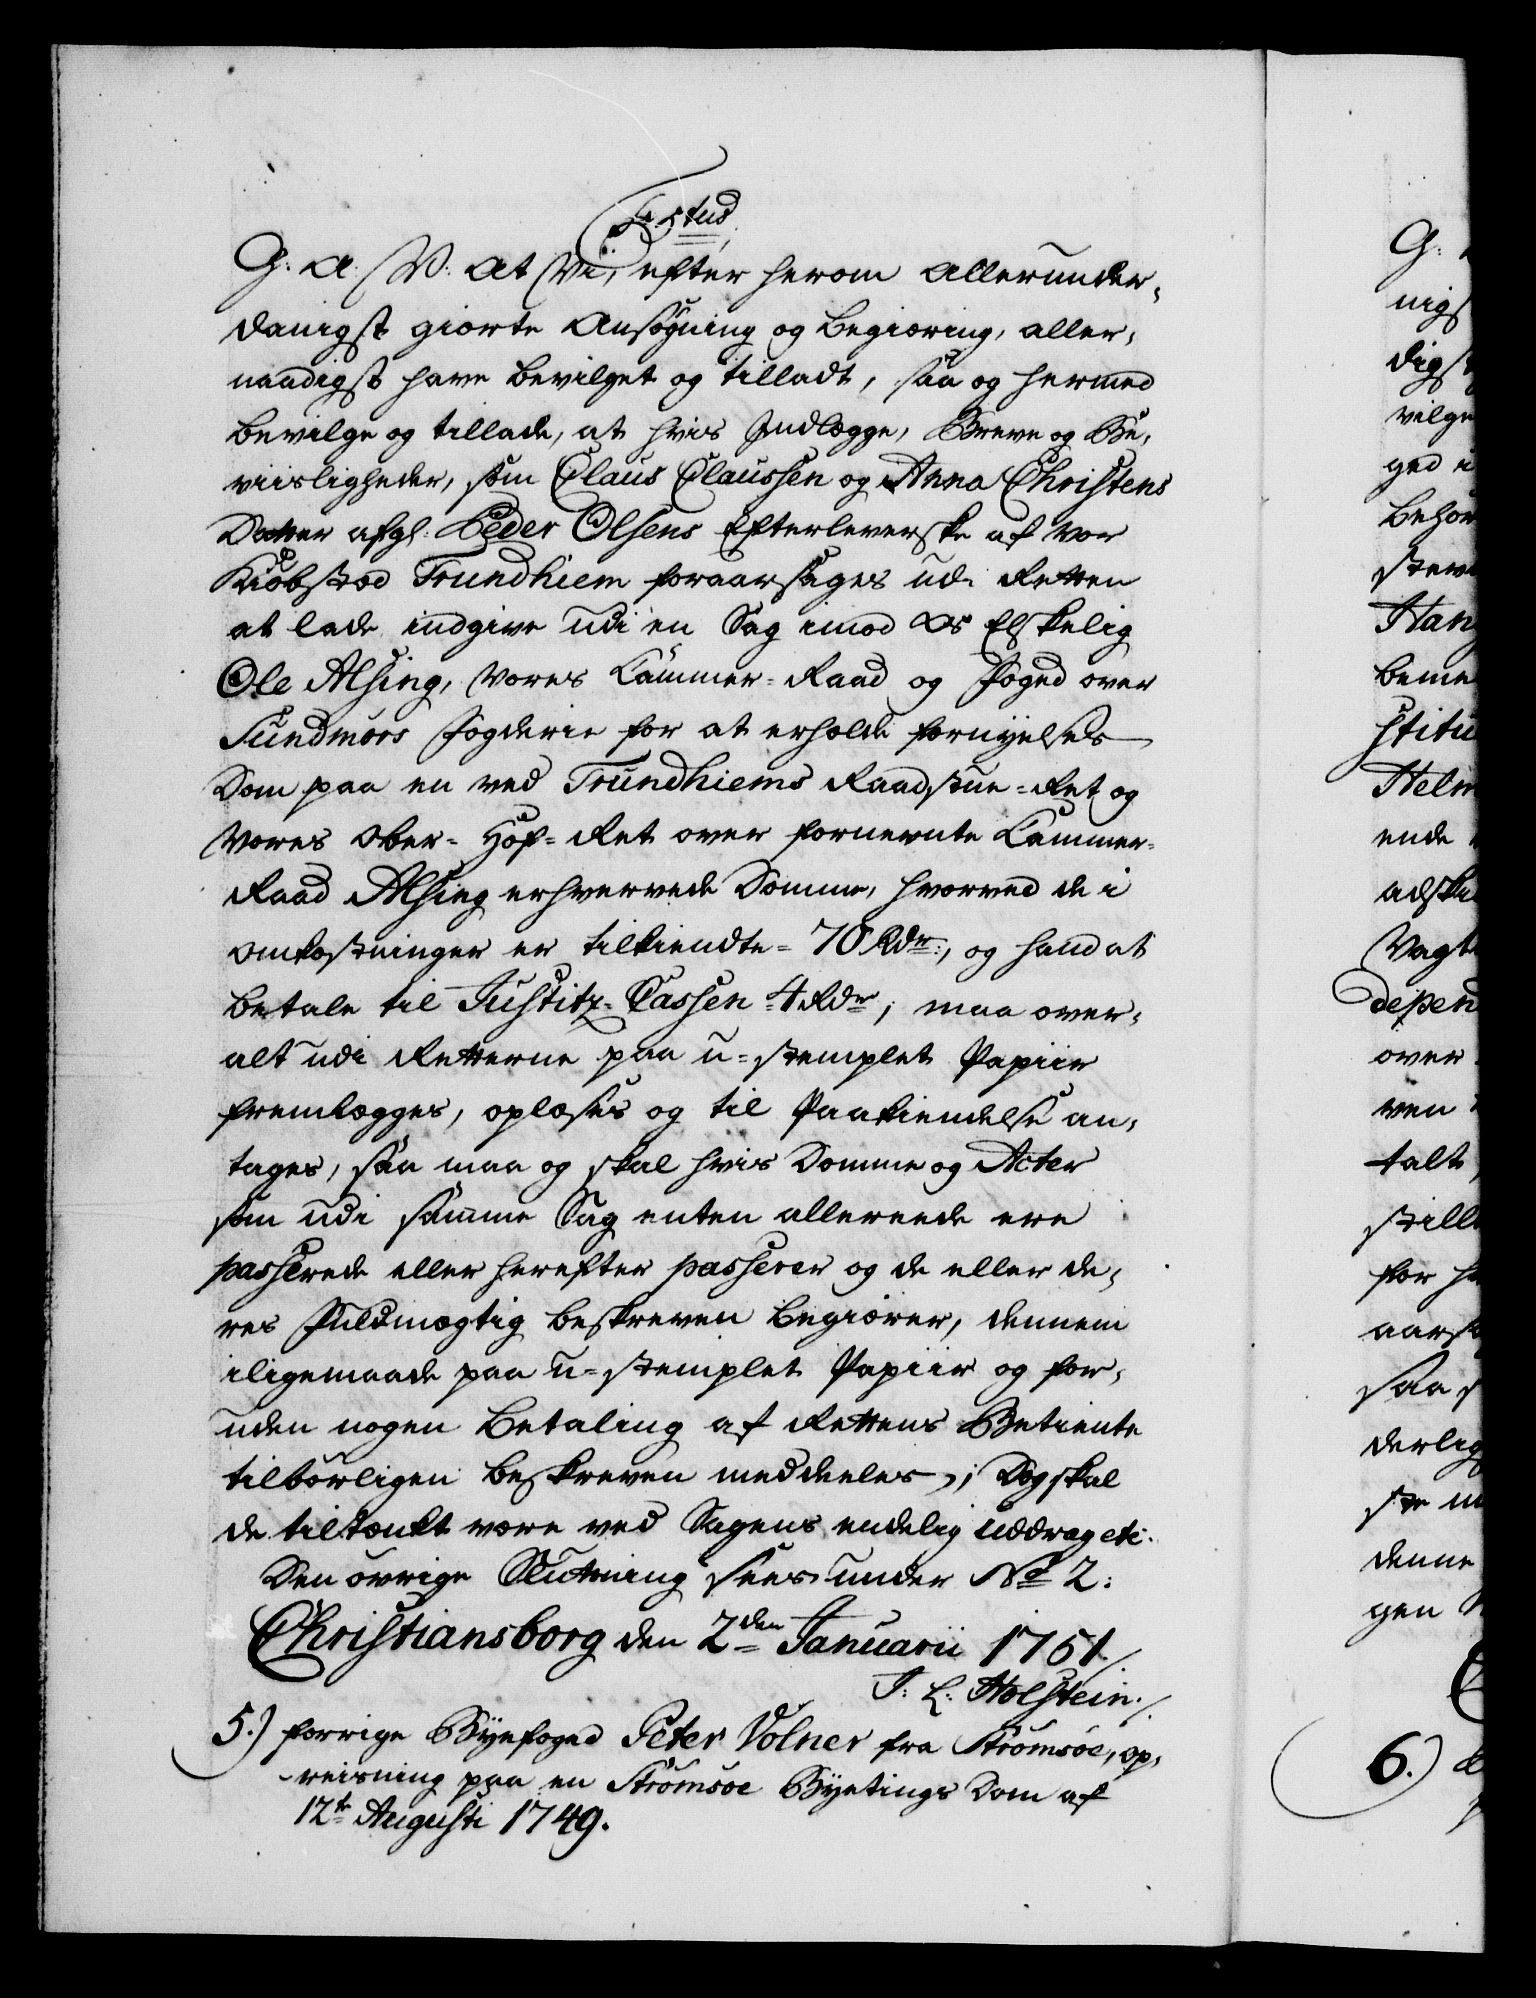 F. 5tus
G: A: V: At Vi, efter herom allerunder-
danigst giorte Ansøgning og Begiæring, aller-
naadigst have bevilget og tilladt, saa og hermed
bevilge og tillade, at hvis Indlægge, Breve og Be-
viisligheder, som Claus Claussen og Anna Christens
Datter afgl: Peder Olsens Efterleverske af vor
Kiøbsted Trundhiem foraarsages udi Retten
at lade indgive udi en Sag imod Os Elskelig
Ole Alsing, Vores Cammer-Raad og Foged over
Sundmørs Fogderie for at erholde fornyelses
Dom paa en ved Trundhiems Raadstue-Ret og
Vores Ober-Hof-Ret over fornevnte Cammer-
Raad Alsing erhvervede Domme, hvorved de i
Omkostninger er tilkiendte 70 Rdr:, og hand at
betale til Justitz-Cassen 4 Rdr, maa over-
alt udi Retterne paa u-stemplet Papiir
fremlægges, oplæses og til Paakiendelse an-
tages, saa maa og skal hvis Domme og Acter
som udi samme Sag enten allereede ere
passerede eller herefter passerer og de eller de-
res Fuldmægtig beskreven begiærer, dennem
iligemaade paa u-stemplet Papiir og for-
uden nogen Betaling af Rettens Betiente
tilbørligen beskreven meddeeles; Dog skal
de tiltænkt være ved Sagens endelig Uddrag etc:
Den øvrige Slutning sees under No 2:
Christiansborg den 2den Januarii 1751.
J: L: Holstein.
5.) forrige Byefoged Peter Volner fra Strømsøe, op-
reisning paa en Strømsøe Byetings Dom af
12te Augusti 1749.
G:
nigst
digst
vilge
ged i
behør
steve
Han
beme
stitu
Helm
ende
adski
Vagt
depen
over
ven
talt
stille
for h
aars
saa s
derlig
ste
denne
gen
6.)